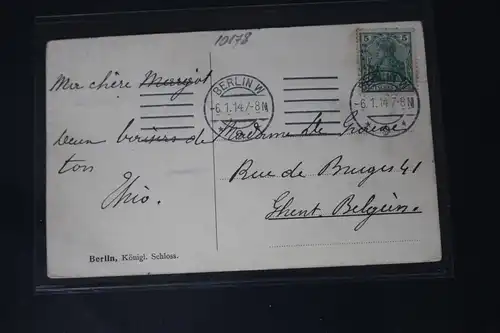 10178
BERLIN W
-6.1.14.7-8N
5
-6.1.14.7-8N
Ma chère Margot
deux baisers de
ton
Madame de
Rue de Bruges 41
Ghent. Belgien.
Berlin, Königl. Schloss.